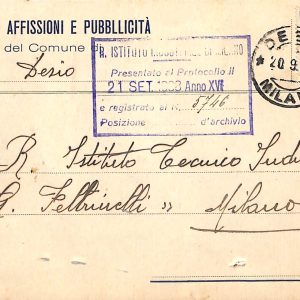 AFFISSIONI E PUBBLICITÀ
del Comune d
Desio
R. ISTITUTO INDUSTRIALE MILANO
Presentato al Protocollo il
21 SET. 1938 Anno XVI
e registrato al N. 5746
Posizione d'archivio
DE
20.9
MILAN
R Istituto Tecnico Indu
G. Feltrinelli »
Milano